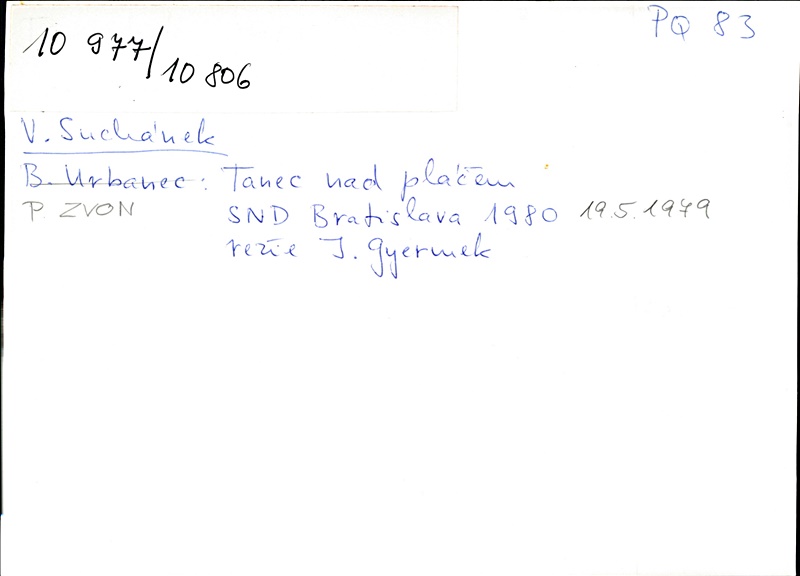 PQ 83
10 977/10 806
V. Suchánek
B. Urbanec: Tanec nad pláčem
P. ZVON SND Bratislava 1980 19.5.1979
režie J. Gyermek